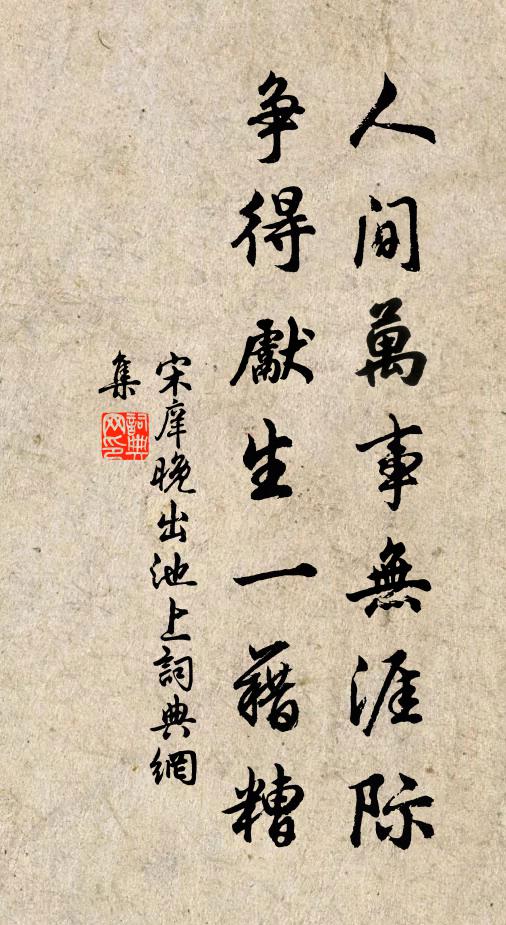 人间萬事無涯际
争得獻生一藉糟
宋庠晚出池上詞典網
集
詞典
网印